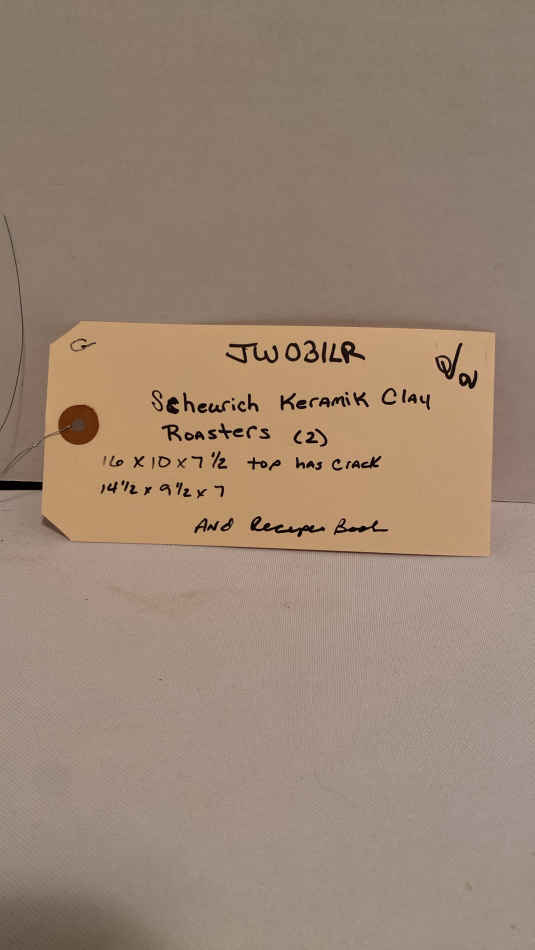 G
JW031LR
2/2
Scheurich Keramik Clay
Roasters (2)
16 x 10 x 7 1/2 top has crack
14 1/2 x 9 1/2 x 7
And Recipes Book